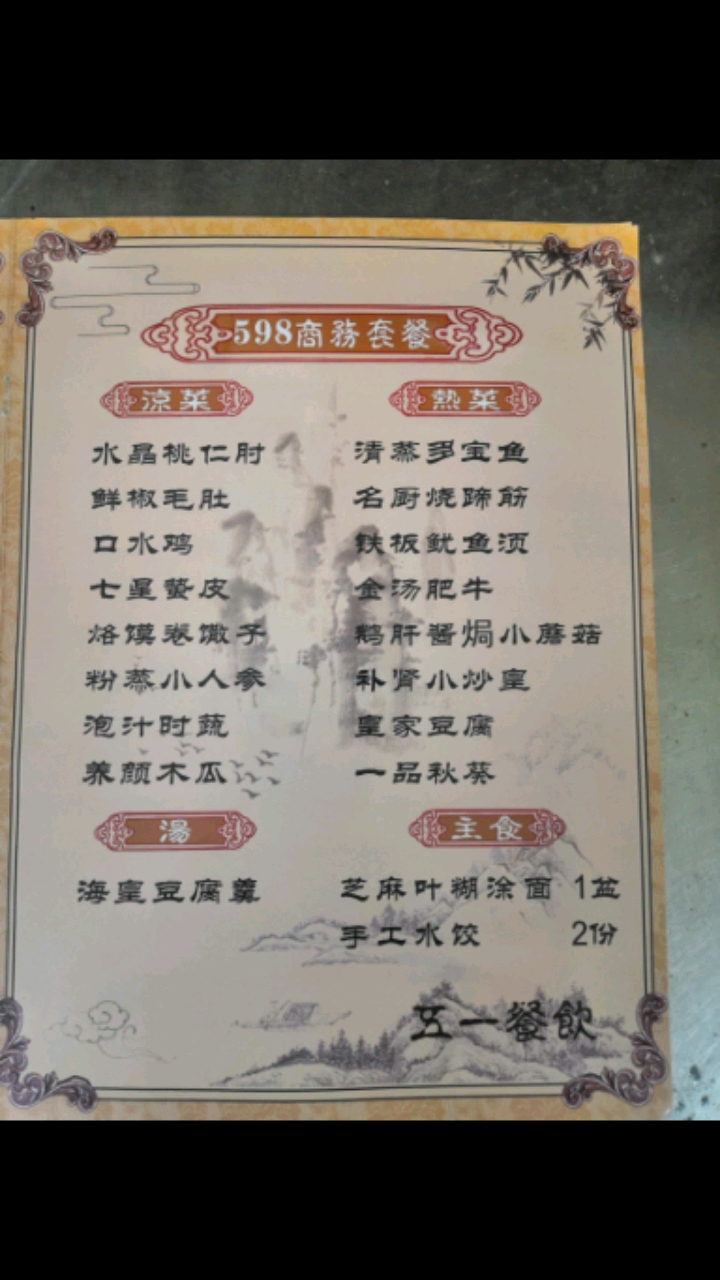 598商務套餐
涼菜
水晶桃仁肘
鲜椒毛肚
口水鸡
七星蜇皮
烙馍卷馓子
粉蒸小人参
泡汁时蔬
养颜木瓜
熱菜
清蒸多宝鱼
名厨烧蹄筋
铁板鱿鱼须
金汤肥牛
鹅肝酱焗小蘑菇
补肾小炒皇
皇家豆腐
一品秋葵
湯
海皇豆腐羹
主食
芝麻叶糊涂面 1盆
手工水饺 2份
五一餐飲